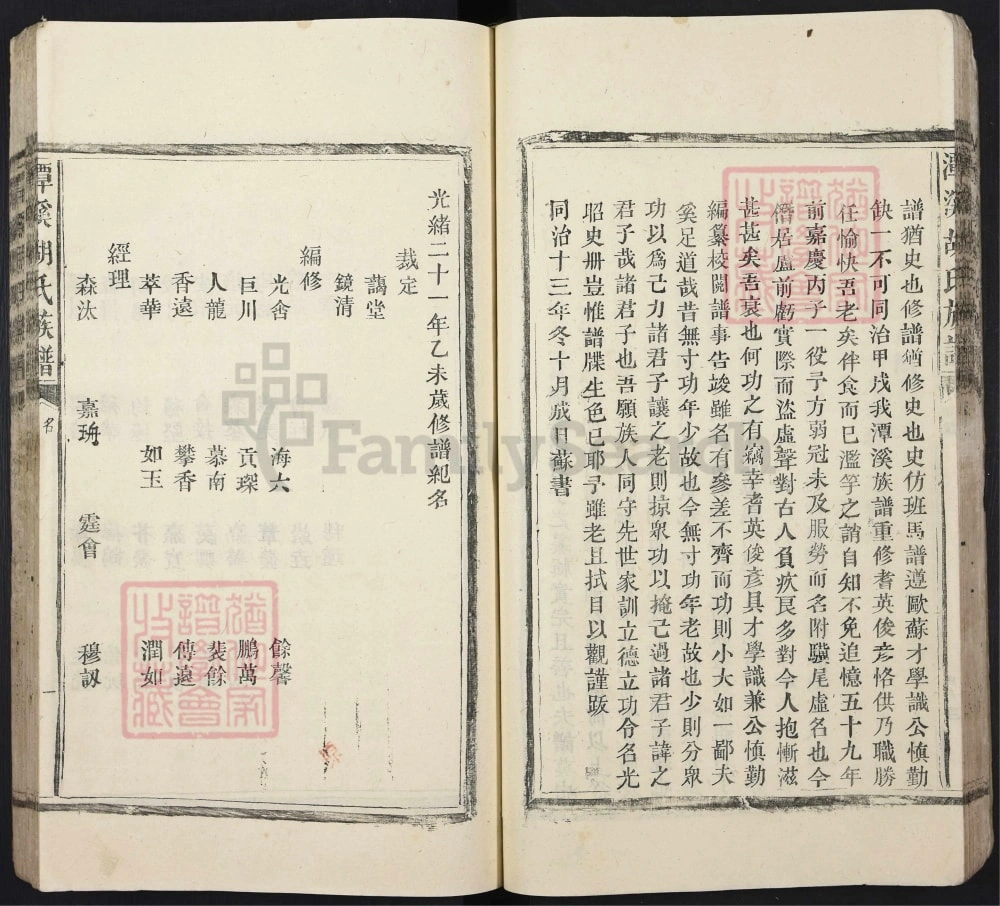 譜猶史也修譜猶修史也史仿班馬譜遵歐蘇才學識公慎勤
缺一不可同治甲戌我潭溪族譜重修耆英俊彥恪供乃職勝
任愉快吾老矣伴食而已濫竽之誚自知不免追憶五十九年
前嘉慶丙子一役予方弱冠未及服勞而名附驥尾虛名也今
僭居盧前虧實際而盜虛聲對古人負疚良多對今人抱慚滋
甚甚矣吾衰也何功之有竊幸耆英俊彥具才學識兼公慎勤
編纂校閱譜事告竣雖名有參差不齊而功則小大如一鄙夫
奚足道哉昔無寸功年少故也今無寸功年老故也少則分眾
功以為己力諸君子讓之老則掠眾功以掩己過諸君子諱之
君子哉諸君子也吾願族人同守先世家訓立德立功令名光
昭史冊豈惟譜牒生色已耶予雖老且拭目以觀謹跋
同治十三年冬十月成目蘇書
潭溪胡氏族譜
光緒二十一年乙未歲修譜紀名
裁定
藹堂
鏡清
編修
光舍 海六 餘馨
巨川 貢琛 鵬萬
人龍 慕南 裴餘
香遠 攀香 傅遠
萃華 如玉 潤如
經理
森汰 嘉珘 霆會 穆訒
潭溪胡氏族譜 名
猶他家譜學會收藏
猶他家譜學會收藏
FamilySearch